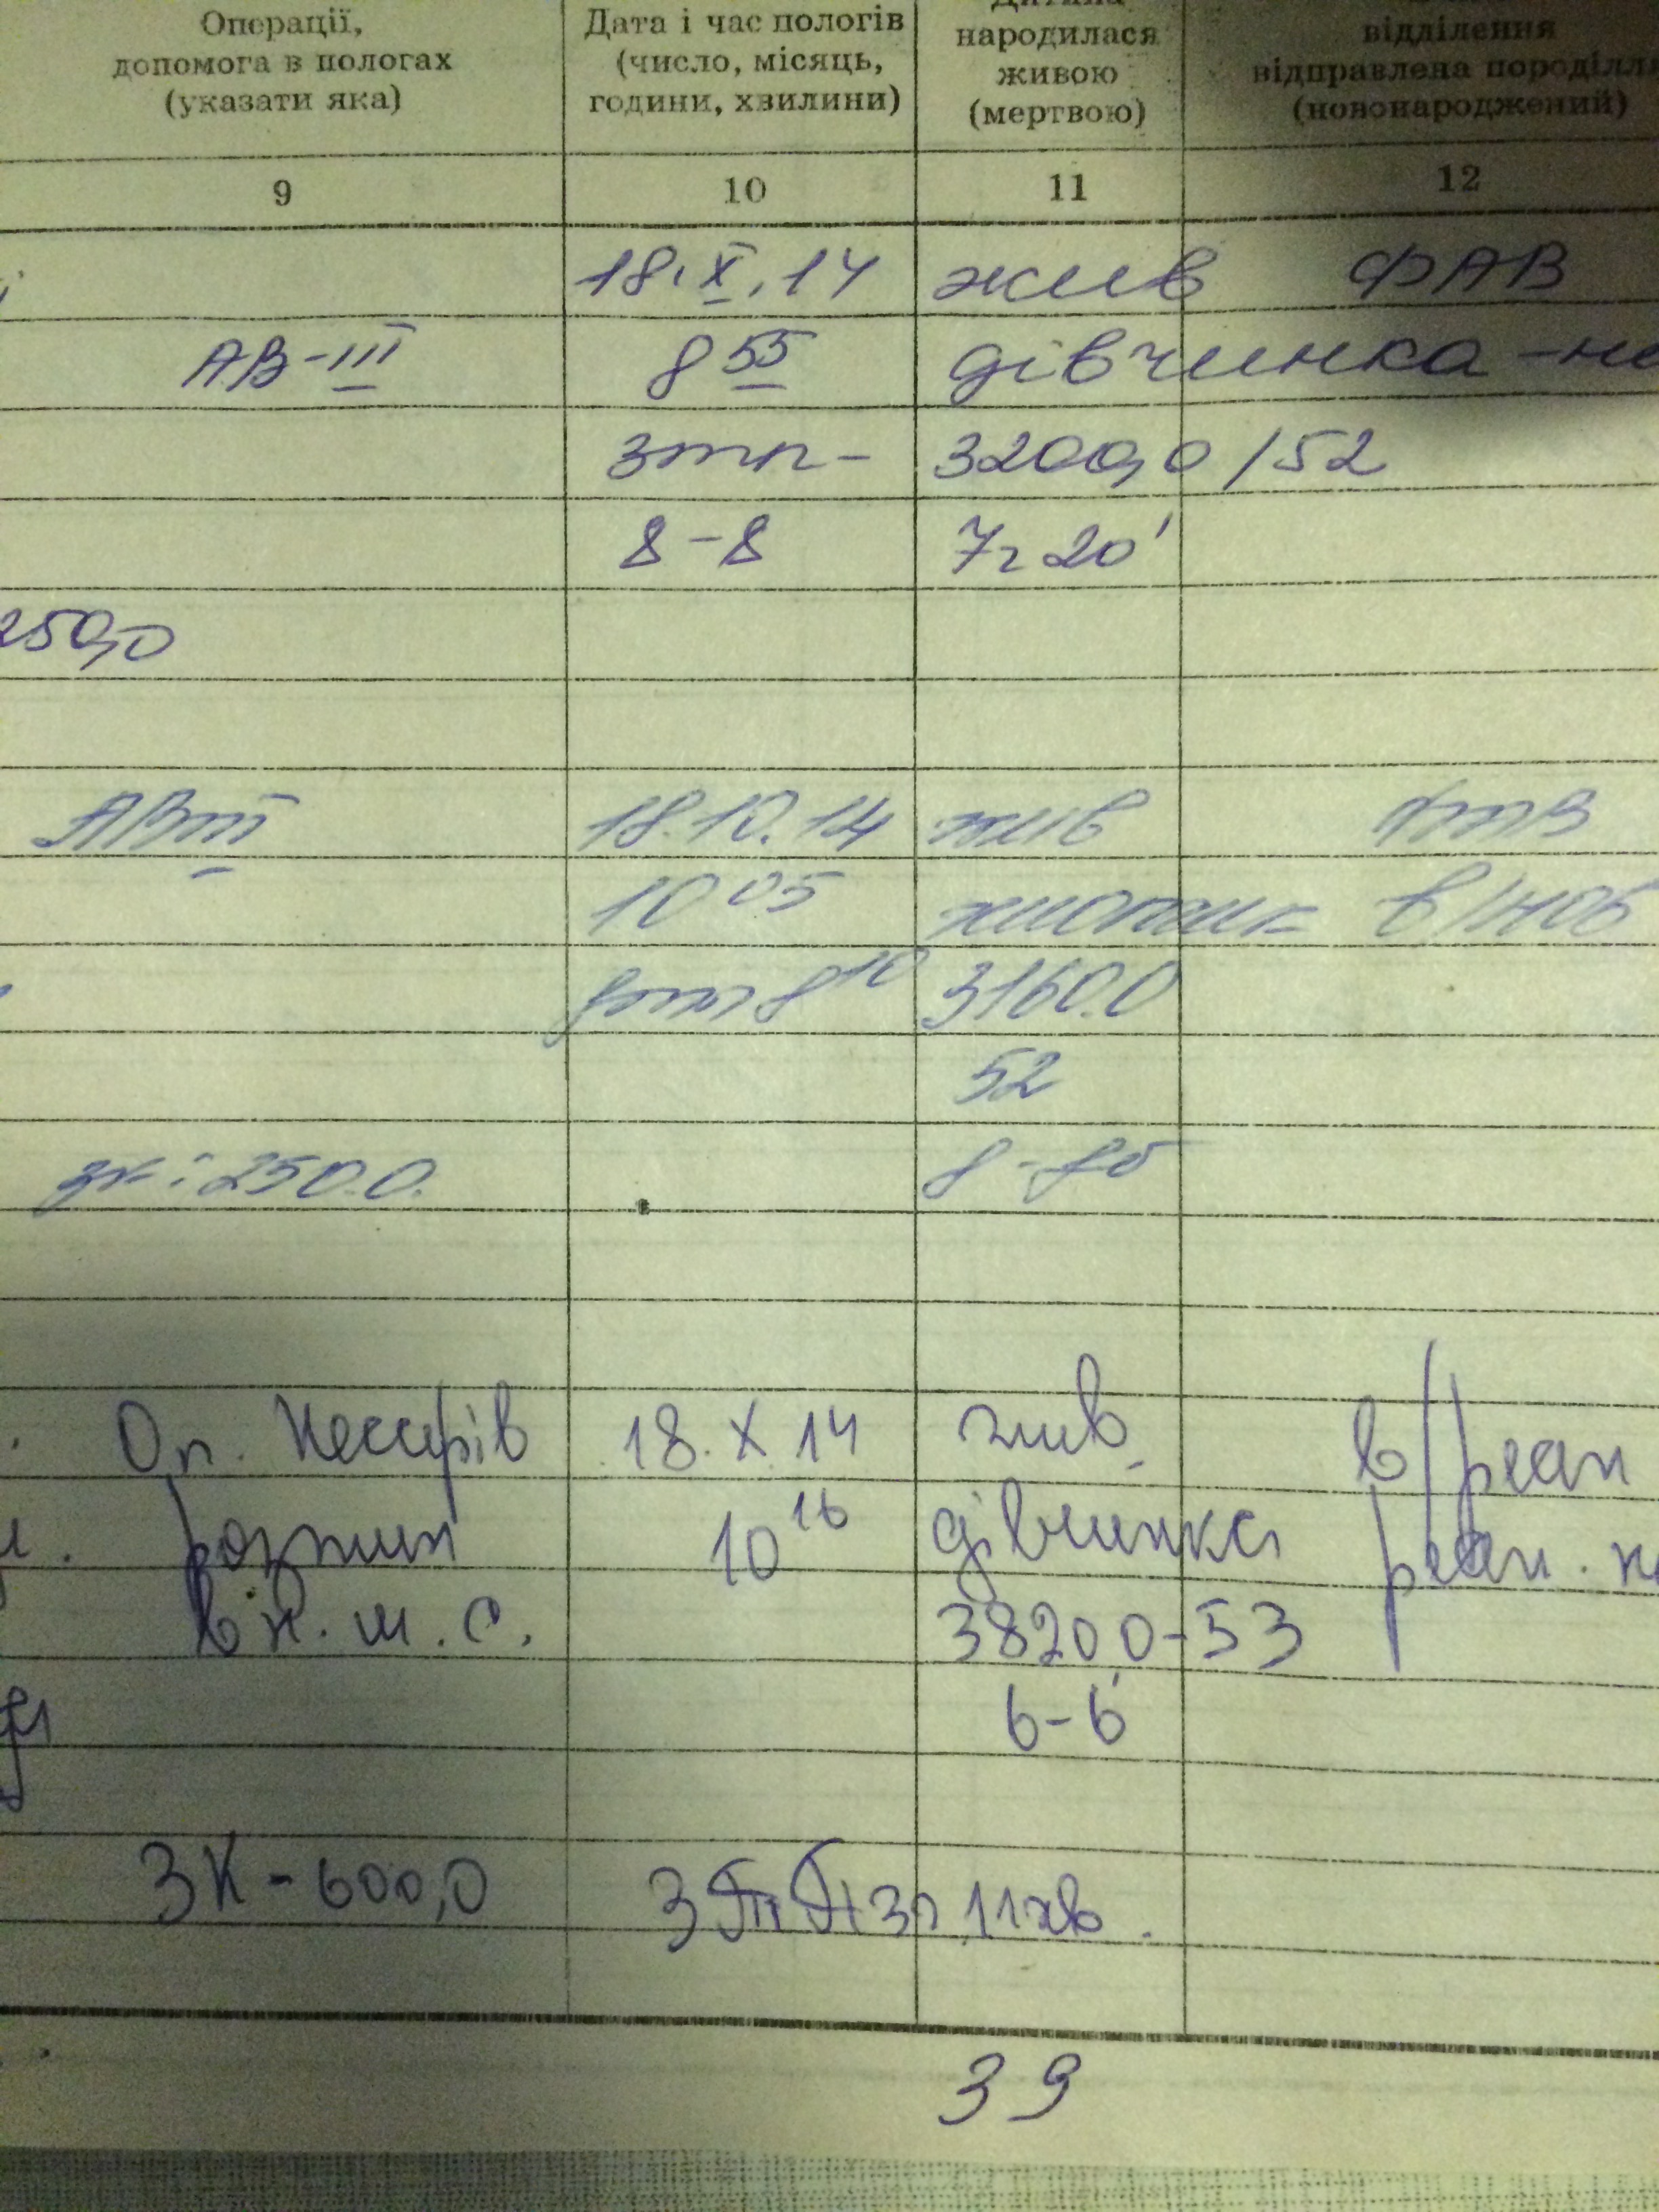 Операції,
допомога в пологах
(указати яка)
Дата і час пологів
(число, місяць,
години, хвилини)
Дитина
народилася
живою
(мертвою)
відділення
відправлена породілля
(новонароджений)
9 10 11 12
18.X.14 жив ФАВ
АВ-III 8 55 дівчинка
3200,0 /52
8-8 7г 20'
250,0
АВIII 18.10.14 жив
10 05 в/нов
8 10 3160.0
52
250.0.
Оп. Кесарів 18.X 14 жив
розтин 10 16 дівчинка
в н.м.с. 3820,0-53
6-6
ЗК-600,0 11хв.
39